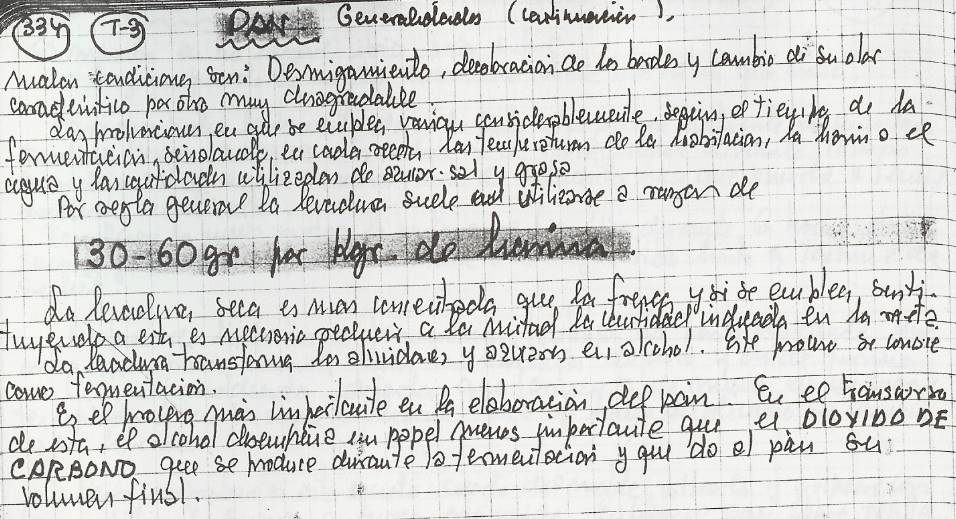 334 T-3 PAN Generalidades (continuación).
malas condiciones son: Desmigamiento, decoloracion de los bordes y cambio de su olor
característico por otro muy desagradable.
Las proporciones, en que se emplea varian considerablemente, segun, el tiempo de la
fermentación, señalando, en cada receta, las temperaturas de la habitacion, la harina o el
agua y las cantidades utilizadas de azucar. sal y grasa
Por regla general la levadura suele utilizarse a razon de
30-60 gr por kgr. de harina.
La levadura, seca es mas concentrada que la fresca y si se emplea, susti-
tuyendo a esta, es necesario reducir a la mitad la cantidad indicada en la receta.
La, levadura transforma los almidones y azucares en, alcohol. Este proceso se conoce
como fermentacion.
Es el proceso más importante en la elaboración del pan. En el transcurso
de esta, el alcohol desempeña un papel menos importante que el DIOXIDO DE
CARBONO que se produce durante la fermentacion y que da al pan su
volumen final.